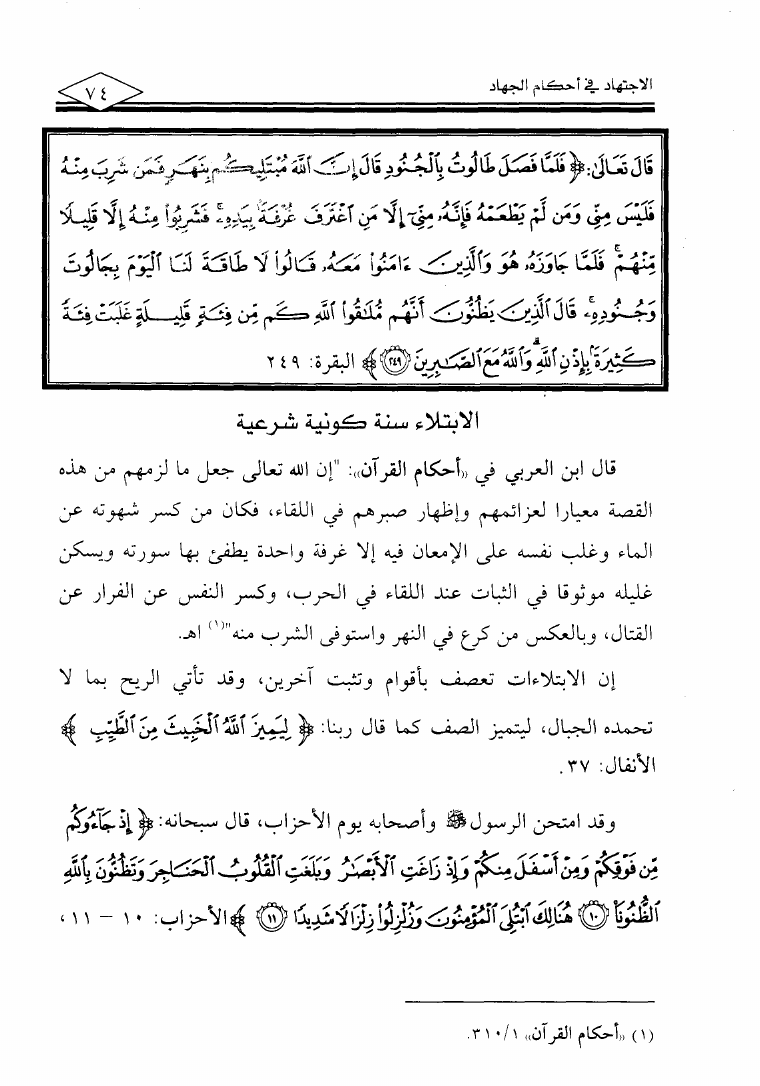 الاجتهاد في أحكام الجهاد
٧٤
قَالَ تَعَالَىٰ: ﴿ فَلَمَّا فَصَلَ طَالُوتُ بِٱلْجُنُودِ قَالَ إِنَّ ٱللَّهَ مُبْتَلِيكُم بِنَهَرٍ فَمَن شَرِبَ مِنْهُ
فَلَيْسَ مِنِّي وَمَن لَّمْ يَطْعَمْهُ فَإِنَّهُۥ مِنِّيٓ إِلَّا مَنِ ٱغْتَرَفَ غُرْفَةًۢ بِيَدِهِۦۚ فَشَرِبُوا۟ مِنْهُ إِلَّا قَلِيلًا
مِّنْهُمْۚ فَلَمَّا جَاوَزَهُۥ هُوَ وَٱلَّذِينَ ءَامَنُوا۟ مَعَهُۥ قَالُوا۟ لَا طَاقَةَ لَنَا ٱلْيَوْمَ بِجَالُوتَ
وَجُنُودِهِۦۚ قَالَ ٱلَّذِينَ يَظُنُّونَ أَنَّهُم مُّلَٰقُوا۟ ٱللَّهِ كَم مِّن فِئَةٍ قَلِيلَةٍ غَلَبَتْ فِئَةً
كَثِيرَةًۢ بِإِذْنِ ٱللَّهِۗ وَٱللَّهُ مَعَ ٱلصَّٰبِرِينَ ٢٤٩ ﴾ البقرة: ٢٤٩
الابتلاء سنة كونية شرعية
قال ابن العربي في «أحكام القرآن»: "إن الله تعالى جعل ما لزمهم من هذه
القصة معيارا لعزائمهم وإظهار صبرهم في اللقاء، فكان من كسر شهوته عن
الماء وغلب نفسه على الإمعان فيه إلا غرفة واحدة يطفئ بها سورته ويسكن
غليله موثوقا في الثبات عند اللقاء في الحرب، وكسر النفس عن الفرار عن
القتال، وبالعكس من كرع في النهر واستوفى الشرب منه"(١) اهـ.
إن الابتلاءات تعصف بأقوام وتثبت آخرين، وقد تأتي الريح بما لا
تحمده الجبال، ليتميز الصف كما قال ربنا: ﴿ لِيَمِيزَ ٱللَّهُ ٱلْخَبِيثَ مِنَ ٱلطَّيِّبِ ﴾
الأنفال: ٣٧.
وقد امتحن الرسول ﷺ وأصحابه يوم الأحزاب، قال سبحانه: ﴿ إِذْ جَآءُوكُم
مِّن فَوْقِكُمْ وَمِنْ أَسْفَلَ مِنكُمْ وَإِذْ زَاغَتِ ٱلْأَبْصَٰرُ وَبَلَغَتِ ٱلْقُلُوبُ ٱلْحَنَاجِرَ وَتَظُنُّونَ بِٱللَّهِ
ٱلظُّنُونَا۠ ١٠ هُنَالِكَ ٱبْتُلِيَ ٱلْمُؤْمِنُونَ وَزُلْزِلُوا۟ زِلْزَالًا شَدِيدًا ١١ ﴾ الأحزاب: ١٠ – ١١،
(١) «أحكام القرآن» ٣١٠/١.